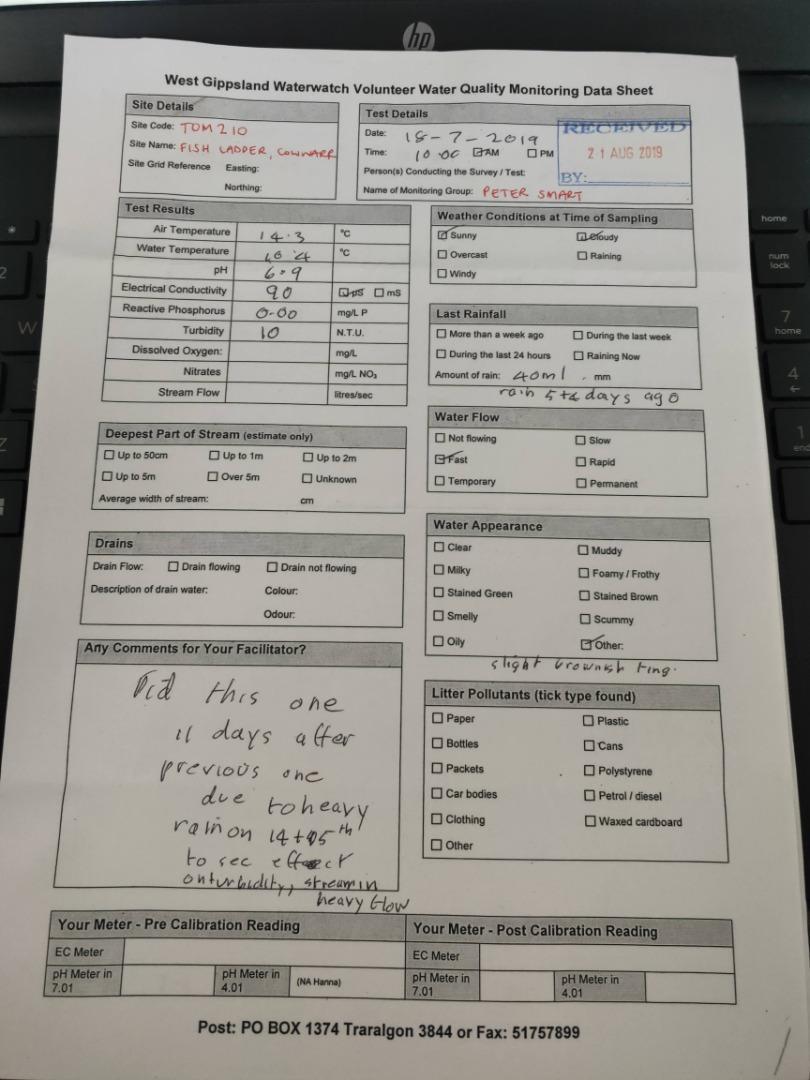 hp
West Gippsland Waterwatch Volunteer Water Quality Monitoring Data Sheet
Site Details
Site Code: TOM210
Site Name: FISH LADDER, COWWARR
Site Grid Reference Easting:
Northing:
Test Details
Date: 18-7-2019
Time: 10.00 AM PM
Person(s) Conducting the Survey / Test:
Name of Monitoring Group: PETER SMART
RECEIVED
21 AUG 2019
BY:
Test Results
Air Temperature 14.3 °C
Water Temperature 10.4 °C
pH 6.9
Electrical Conductivity 90 µS mS
Reactive Phosphorus 0.00 mg/L P
Turbidity 10 N.T.U.
Dissolved Oxygen: mg/L
Nitrates mg/L NO₃
Stream Flow litres/sec
Weather Conditions at Time of Sampling
Sunny Cloudy
Overcast Raining
Windy
Last Rainfall
More than a week ago During the last week
During the last 24 hours Raining Now
Amount of rain: 40ml . mm
rain 5+4 days ago
Deepest Part of Stream (estimate only)
Up to 50cm Up to 1m Up to 2m
Up to 5m Over 5m Unknown
Average width of stream: cm
Water Flow
Not flowing Slow
Fast Rapid
Temporary Permanent
Drains
Drain Flow: Drain flowing Drain not flowing
Description of drain water: Colour:
Odour:
Water Appearance
Clear Muddy
Milky Foamy / Frothy
Stained Green Stained Brown
Smelly Scummy
Oily Other:
slight brownish ting.
Any Comments for Your Facilitator?
Did this one
11 days after
previous one
due to heavy
rain on 14+15th
to see effect
on turbidity, stream in
heavy flow
Litter Pollutants (tick type found)
Paper Plastic
Bottles Cans
Packets Polystyrene
Car bodies Petrol / diesel
Clothing Waxed cardboard
Other
Your Meter - Pre Calibration Reading
EC Meter
pH Meter in 7.01 pH Meter in 4.01 (NA Hanna)
Your Meter - Post Calibration Reading
EC Meter
pH Meter in 7.01 pH Meter in 4.01
Post: PO BOX 1374 Traralgon 3844 or Fax: 51757899
home
num
lock
7
home
4
1
end
2
W
Z